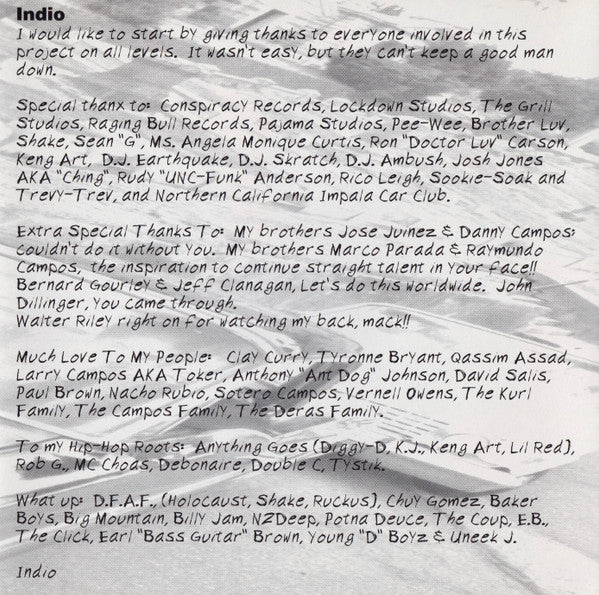 Indio
I would like to start by giving thanks to everyone involved in this
project on all levels. It wasn't easy, but they can't keep a good man
down.
Special thanx to: Conspiracy Records, Lockdown Studios, The Grill
Studios, Raging Bull Records, Pajama Studios, Pee-Wee, Brother Luv,
Shake, Sean "G", Ms. Angela Monique Curtis, Ron "Doctor Luv" Carson,
Keng Art, D.J. Earthquake, D.J. Skratch, D.J. Ambush, Josh Jones
AKA "Ching", Rudy "UNC-Funk" Anderson, Rico Leigh, Sookie-Soak and
Trevy-Trev, and Northern California Impala Car Club.
Extra Special Thanks To: My brothers Jose Juinez & Danny Campos:
couldn't do it without you. My brothers Marco Parada & Raymundo
Campos, the inspiration to continue straight talent in your face!!
Bernard Gourley & Jeff Clanagan, Let's do this worldwide. John
Dillinger, you came through.
Walter Riley right on for watching my back, mack!!
Much Love To My People: Clay Curry, Tyronne Bryant, Qassim Assad,
Larry Campos AKA Toker, Anthony "Ant Dog" Johnson, David Salis,
Paul Brown, Nacho Rubio, Sotero Campos, Vernell Owens, The Kurl
Family, The Campos Family, The Deras Family.
To my Hip-Hop Roots: Anything Goes (Diggy-D, K.J., Keng Art, Lil Red),
Rob G., MC Choas, Debonaire, Double C, Tystik.
What up: D.F.A.F., (Holocaust, Shake, Ruckus), Chuy Gomez, Baker
Boys, Big Mountain, Billy Jam, N2Deep, Potna Deuce, The Coup, E.B.,
The Click, Earl "Bass Guitar" Brown, Young "D" Boyz & Uneek J.
Indio